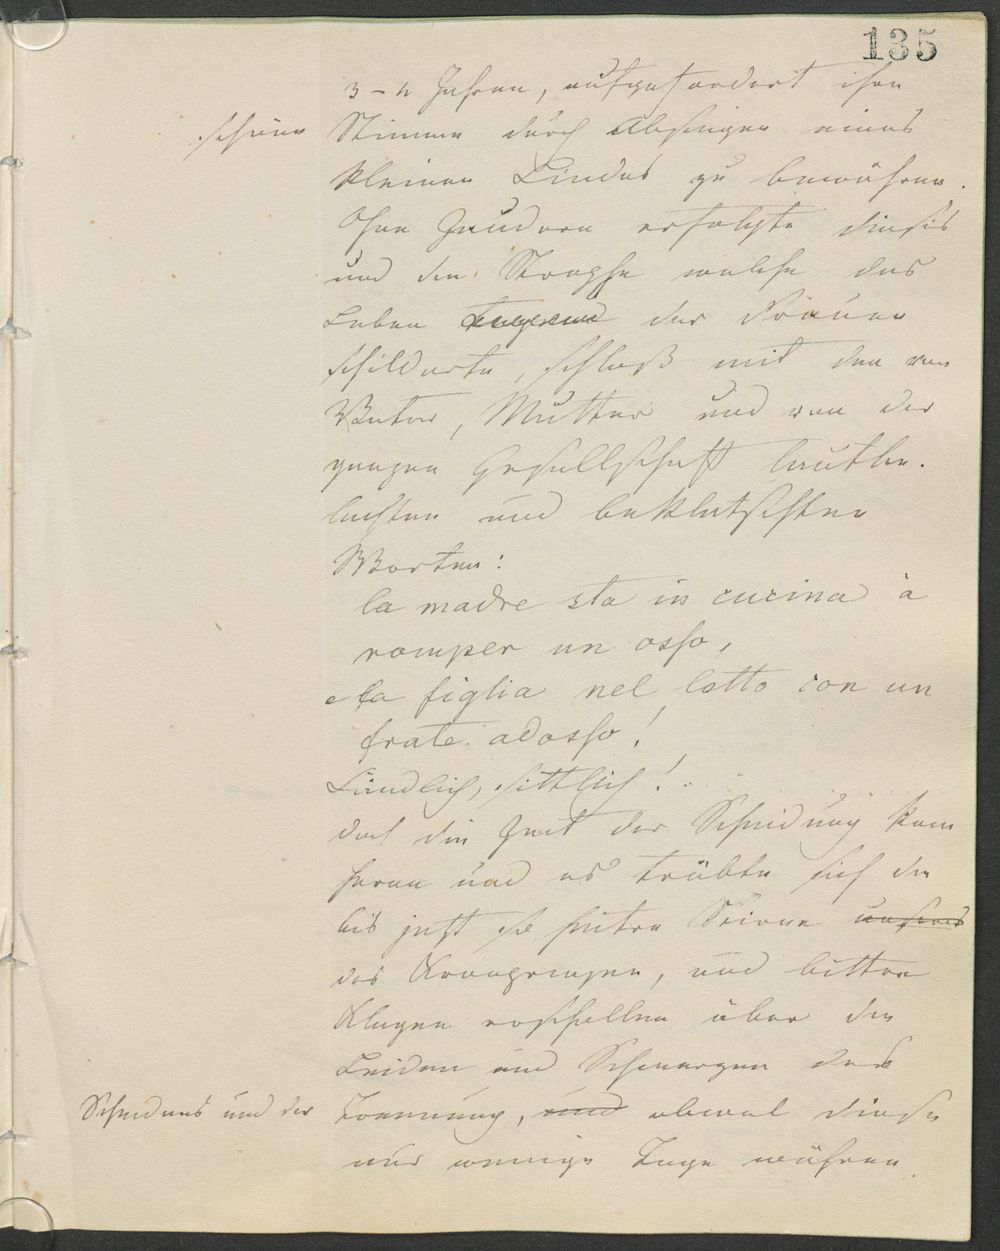 135
3-4 Jahren, aufgefordert ihre
schöne Stimme durch Absingen eines
kleinen Liedes zu bewähren.
Ohne Zaudern erfolgte dieses
und die Strophe welche das
Leben der Frauen
schilderte, schloß mit den von
Vater, Mutter und von der
ganzen Gesellschaft lautbe-
lachten und beklatschten
Worten:
la madre sta in cucina à
romper un osso,
e la figlia nel letto con un
frate adosso!
Ländlich, sittlich!
doch die Zeit der Scheidung kam
heran und es trübte sich die
bis jetzt so heitre Stirne unseres
des Kronprinzen, und bittre
Klagen erschallen über die
Leiden und Schmerzen des
Scheidens und der Trennung, und obwol diese
nur wenige Tage währen